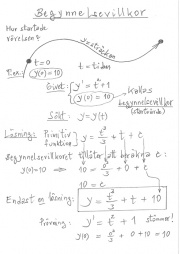 Begynnelsevillkor
Hur startade
rörelsen?
y = sträckan
t = 0
t = tiden
T.ex.: y(0) = 10
Givet: { y' = t² + 1
y(0) = 10
Kallas
begynnelsevillkor
(startvärde)
Sökt: y = y(t)
Lösning: Primitiv
funktion: y = t³/3 + t + C
Begynnelsevillkoret tillåter att beräkna C:
y(0) = 10 → 10 = 0³/3 + 0 + C
10 = C
Endast en lösning: y = t³/3 + t + 10
Prövning: y' = t² + 1 stämmer!
y(0) = 0³/3 + 0 + 10 = 10